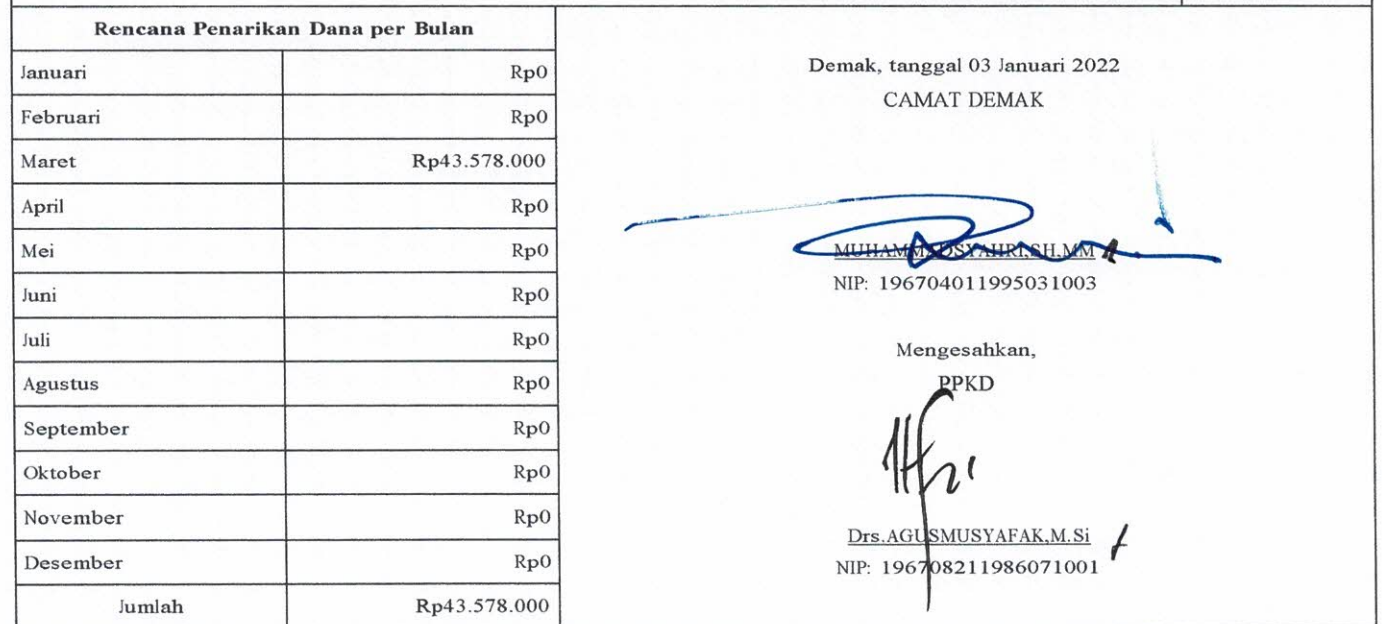 Rencana Penarikan Dana per Bulan
Januari Rp0
Februari Rp0
Maret Rp43.578.000
April Rp0
Mei Rp0
Juni Rp0
Juli Rp0
Agustus Rp0
September Rp0
Oktober Rp0
November Rp0
Desember Rp0
Jumlah Rp43.578.000
Demak, tanggal 03 Januari 2022
CAMAT DEMAK
MUHAMMADSYAHRI,SH,MM
NIP: 196704011995031003
Mengesahkan,
PPKD
Drs.AGUSMUSYAFAK,M.Si
NIP: 196708211986071001